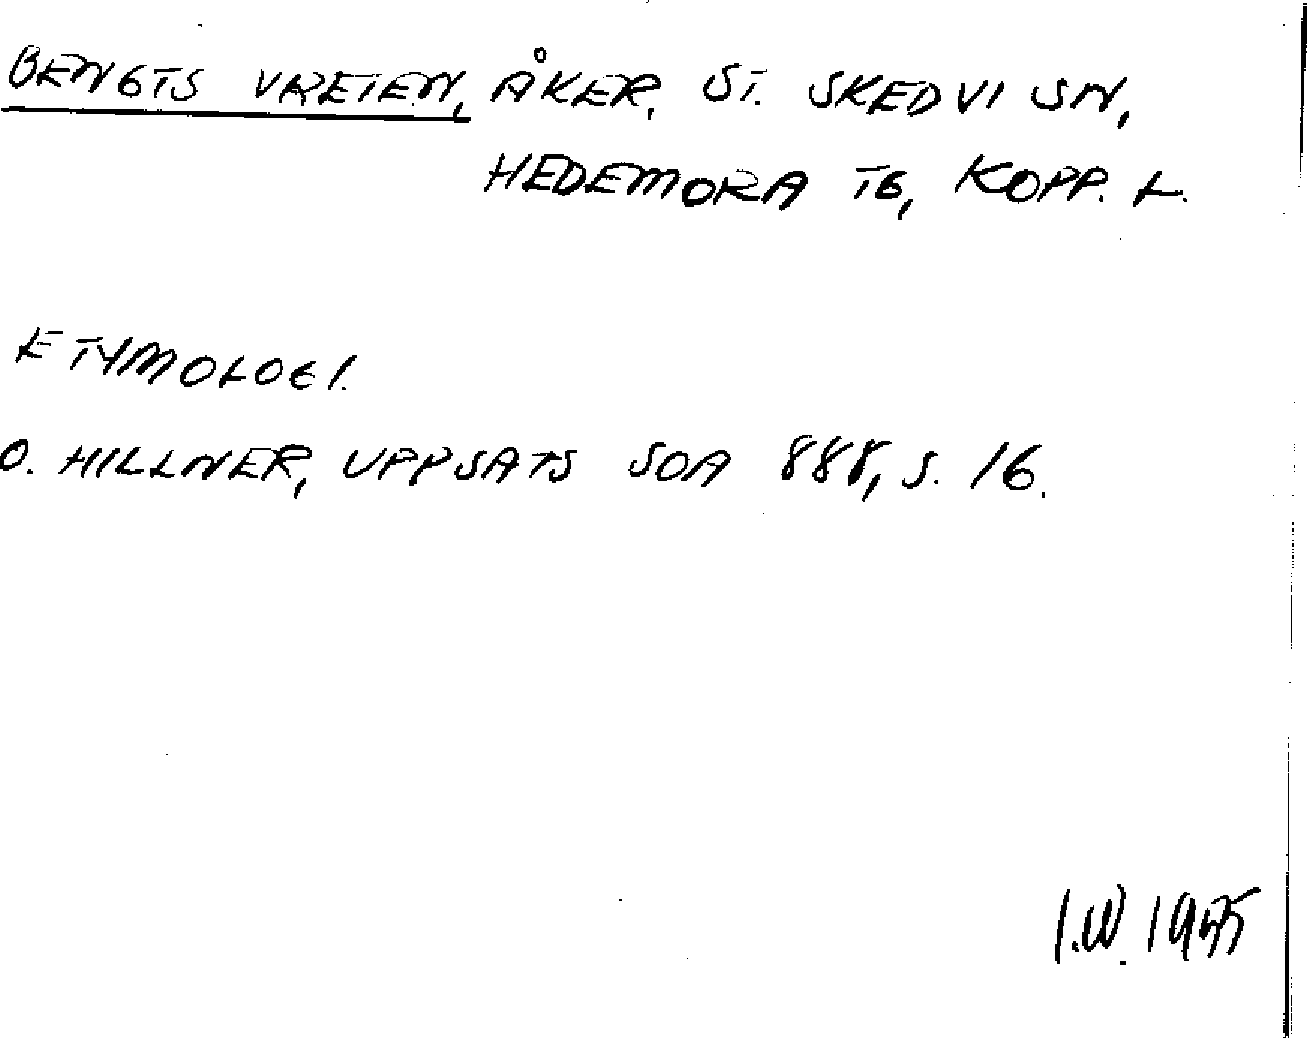 BENGTS VRETEN, ÅKER, ST. SKEDVI SN,
HEDEMORA TG, KOPP. L.
ETYMOLOGI.
O. HILLNER, UPPSATS SOA 888, S. 16.
I.W. 1955